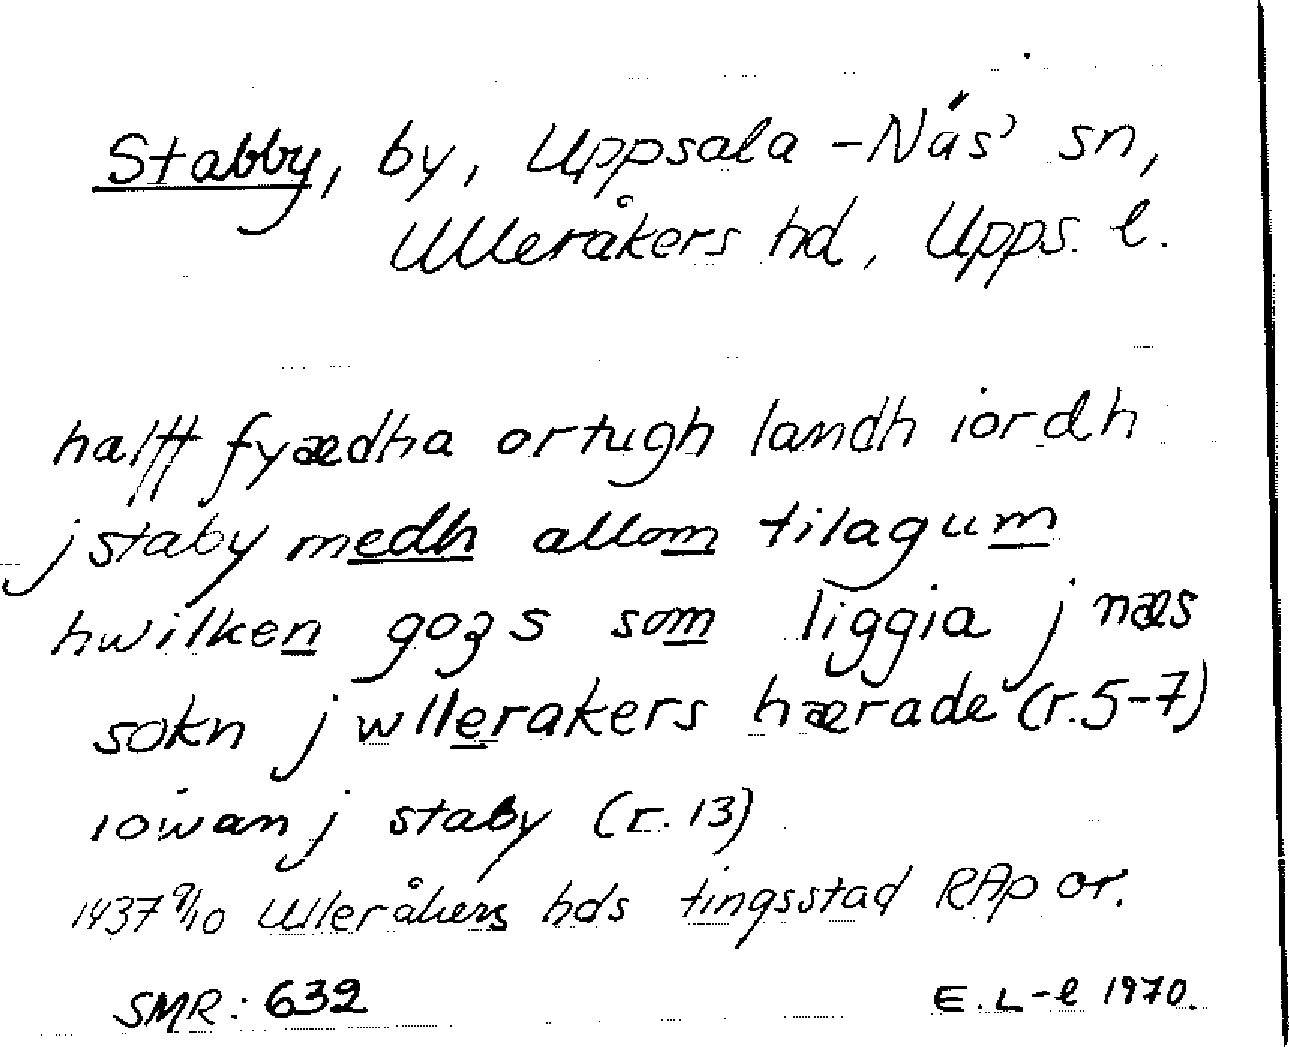 Stabby, by, Uppsala-Näs' sn,
Ulleråkers hd, Upps. l.
halff fyædha ortugh landh iordh
j staby medh allom tilagum
hwilken gozs som liggia j næs
sokn j wllerakers hærade (r.5-7)
iowan j staby (r. 13)
1437 9/10 Ulleråkers hds tingsstad RAp or.
SMR: 632
E. L-l 1970.